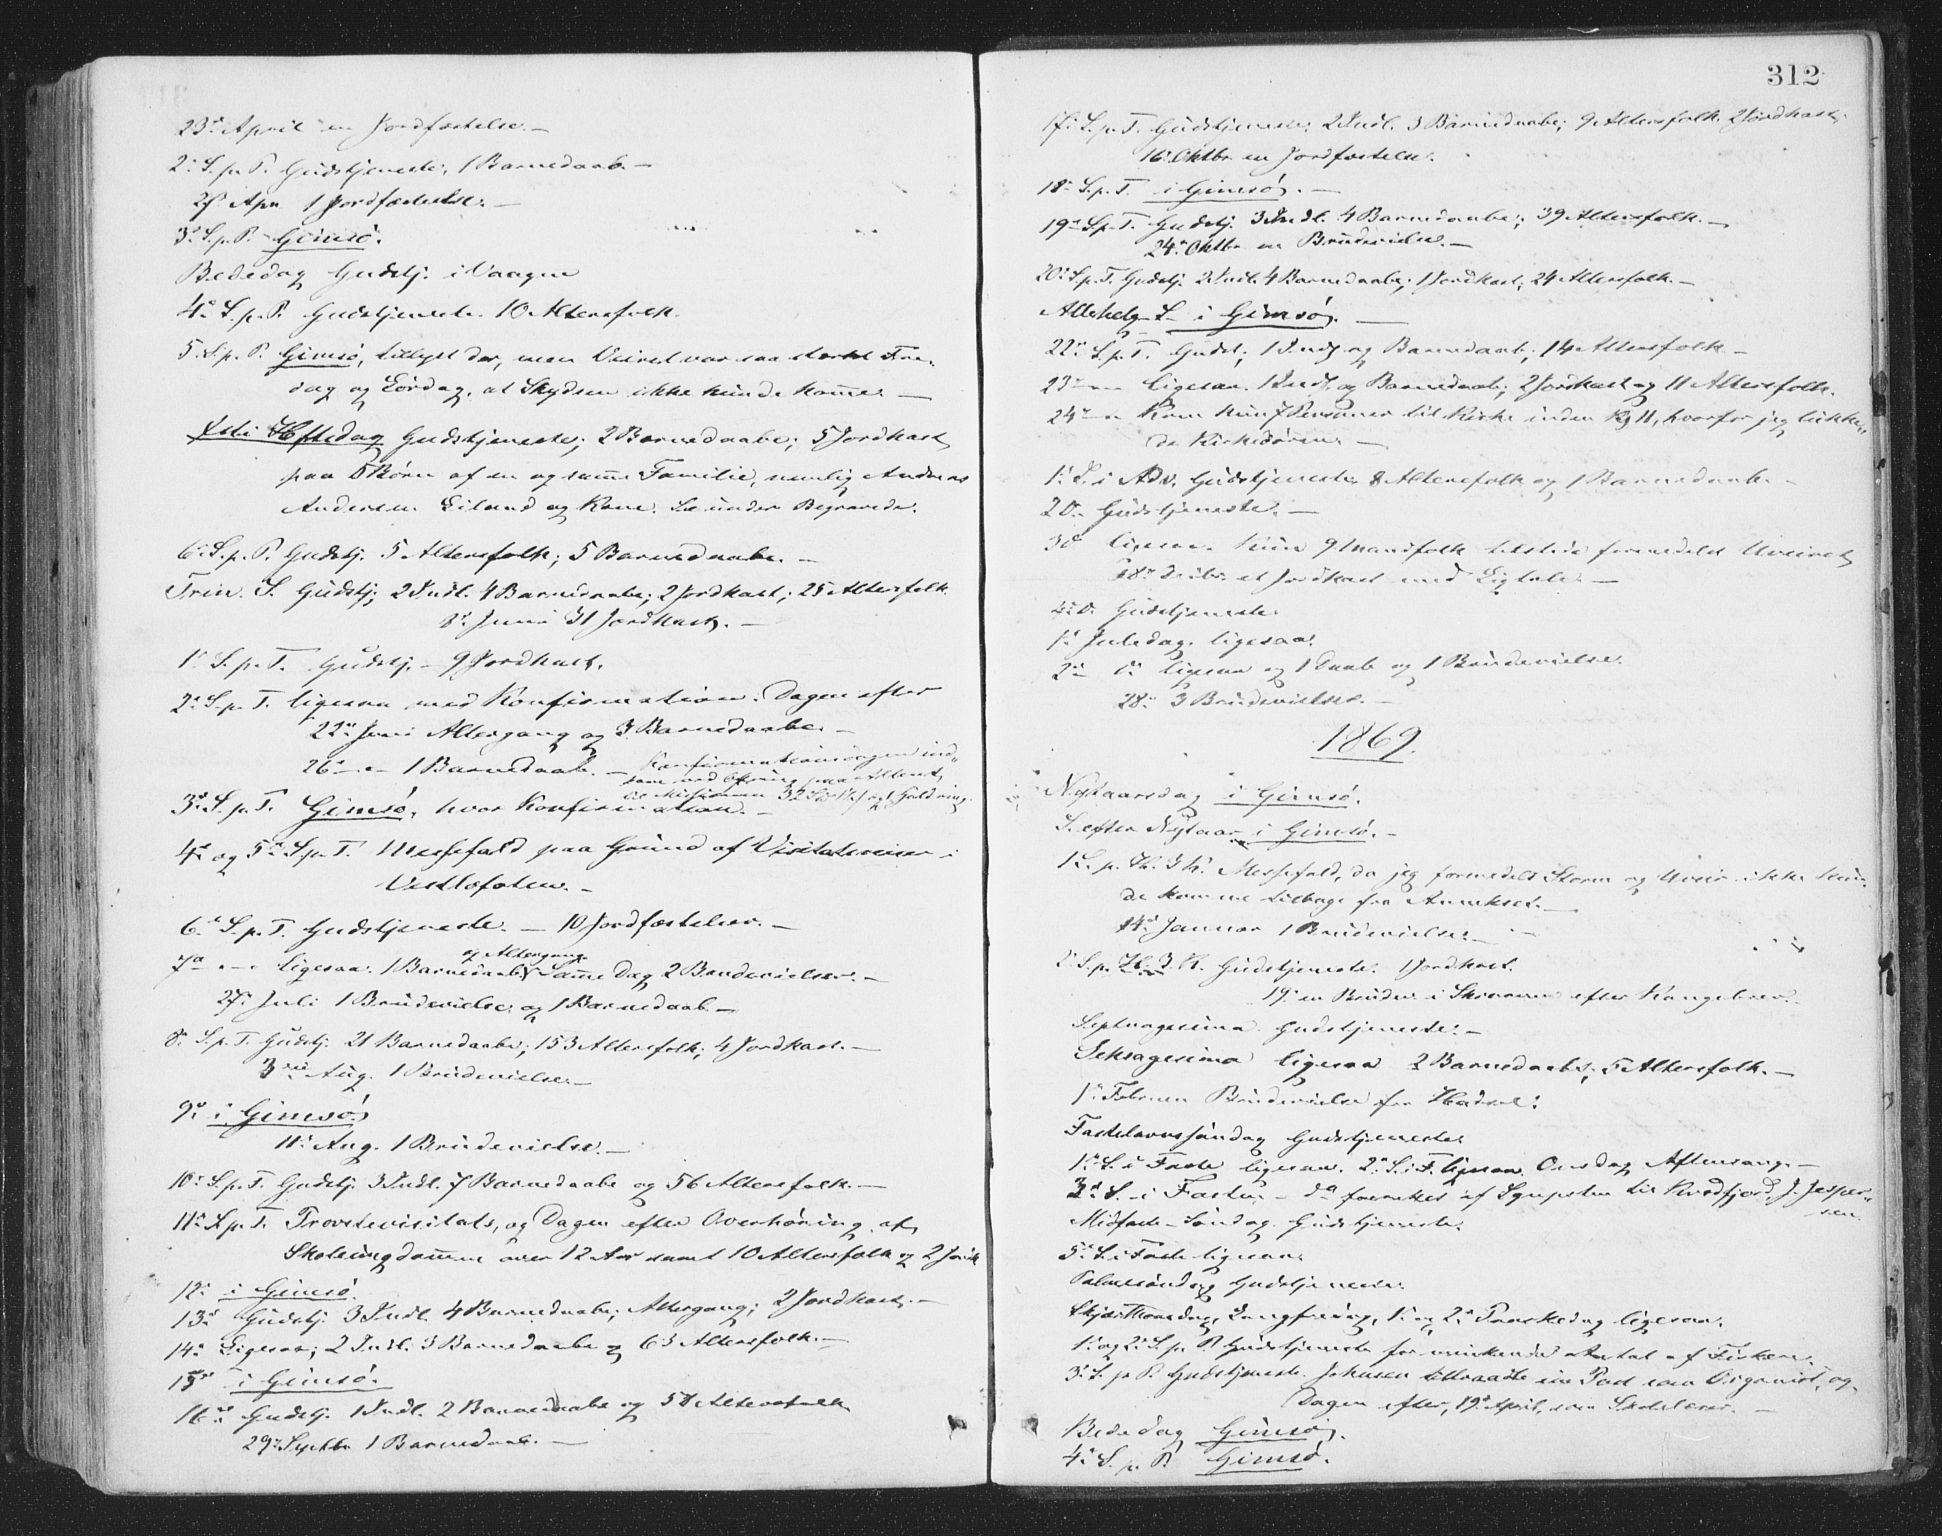 23de April en Jordfæstelse. —
2. S. p. P. Gudstjeneste; 1 Barnedaab. —
27 Apr. 1 Jordfæstelse. —
3. S. p. P. Gimsö.
Bededag Gudstj. i Vaagen
4. S. p. P. Gudstjeneste. 10 Altersfolk.
5. S. p. P. Gimsö, tillyst der, men Veiret var saa stærkt Fre-
dag og Lördag, at Skydsen ikke kunde komme. —
Xsti Hftsdag Gudstjeneste; 2 Barnedaabe; 5 Jordkast
paa 5 Börn af en og samme Familie, nemlig Andreas
Andersen Eiland og Kone. Se under Begravede.
6. S. p. P. Gudstj. 5 Altersfolk; 5 Barnedaabe. —
Trin. S. Gudstj; 2 Indl. 4 Barnedaabe; 2 Jordkast; 25 Altersfolk
8. Juni 31 Jordkast. —
1. S. p. T. Gudstj. — 9 Jordkast.
2. S. p. T. ligesaa med Konfirmation. Dagen efter
22de Juni Altergang og 3 Barnedaabe. —
26 — 1 Barnedaab. — Konfirmationssøgen ind-
kom ved Ofring paa Alteret
til Missionen 32 og 1 Guldring.
3. S. p. T. Gimsö, hvor Konfirmation. —
4. og 5. S. p. T. Messefald paa Grund af Visitatsreiser i
Vestlofoten. —
6. S. p. T. Gudstjeneste. — 10 Jordfæstelser. —
og Altergang
7de — ligesaa. 1 Barnedaab. Samme Dag 2 Brudevielser. —
27. Juli 1 Brudevielse og 1 Barnedaab —
8. S. p. T. Gudstj. 21 Barnedaabe; 153 Altersfolk; 4 Jordkast. —
3die Aug. 1 Brudevielse —
9. i Gimsö
11. Aug. 1 Brudevielse. —
10. S. p. T. Gudstj. 3 Indl. 7 Barnedaabe og 56 Altersfolk. —
11. S. p. T. Provstevisitats, og Dagen efter Overhöring af
Skoleungdommen over 12 Aar samt 10 Altersfolk og 2 Jordk
12. i Gimsö.
13. Gudstj. 3 Indl. 4 Barnedaabe; Altergang; 2 Jordkast. —
14. Ligesaa; 2 Indl. 3 Barnedaabe og 63 Altersfolk. —
15. i Gimsö.
16. Gudstj. 1 Indl. 2 Barnedaabe og 58 Altersfolk
29. Septbr 1 Barnedaab. —
312
17. S. p. T. Gudstjeneste; 2 Indl. 3 Barnedaabe; 9 Altersfolk 2 Jordkast.
16. Oktbr en Jordfæstelse.
18. S. p. T. i Gimsö. —
19. S. p. T. Gudstj. 3 Indl. 4 Barnedaabe; 39 Altersfolk. —
24. Oktbr en Brudevielse. —
20. S. p. T. Gudstj. 2 Indl. 4 Barnedaabe; 1 Jordkast; 24 Altersfolk. —
Allehelg. S. i Gimsö. —
22. S. p. T. Gudst; 1 Indl. og Barnedaab. 14 Altersfolk —
23 — ligesaa. 1 Indl. og Barnedaab; 2 Jordkast og 11 Altersfolk.
24 — Kom kun 7 Personer til Kirke inden Kl. 11, hvorfor jeg lukke-
de Kirkedören —
1. S. i Adv. Gudstjeneste 8 Altersfolk og 1 Barnedaab. —
2 D. Gudstjeneste. —
3 D. ligesaa. Kun 9 Mandfolk tilstede formedelst Uveiret
18de Decbr. et Jordkast med Ligtale. —
4. D. Gudstjeneste
1. Juledag. ligesaa.
2. D. ligesaa og 1 Daab og 1 Brudevielse.
28. 3 Brudevielser. —
1869.
Nytaarsdag i Gimsö.
S. efter Nytaar i Gimsö. —
1. S. p. H. 3 K. Messefald, da jeg formedelst Storm og Uveir ikke kun-
de komme tilbage fra Annekset. —
14. Januar 1 Brudevielse. —
2. S. p. H. 3 K. Gudstjeneste. 1 Jordkast.
19. en Brudev. i Skrovaen efter Kongebrev.
Septuagesima Gudstjeneste. —
Seksagesima ligesaa 2 Barnedaabe; 5 Altersfolk. —
1. Februar Brudevielse fra Hadsel.
Fastelavnssöndag Gudstjeneste
1. S. i Faste ligesaa. 2. S. i F. ligesaa Onsdag Aftensang. —
3. S. i Faste — do forrettet af Sognepræsten til Kvædfjord, J. Jesper-
sen.
Midfaste-Söndag. Gudstjeneste.
5. S. i Faste ligesaa.
Palmesöndag Gudstjeneste
Skjærthorsdag, Langfredag, 1. og 2. Paaskedag ligesaa.
1. og 2. S. p. P. Gudstjeneste for minkende Antal af Fiskere.
3. S. p. P. Gudstjeneste. Johnsen tiltraadte sin Post som Organist, og
Dagen efter, 19. April, som Skolelærer. —
Bededag Gimsö.
4. S. p. P. Gimsö.